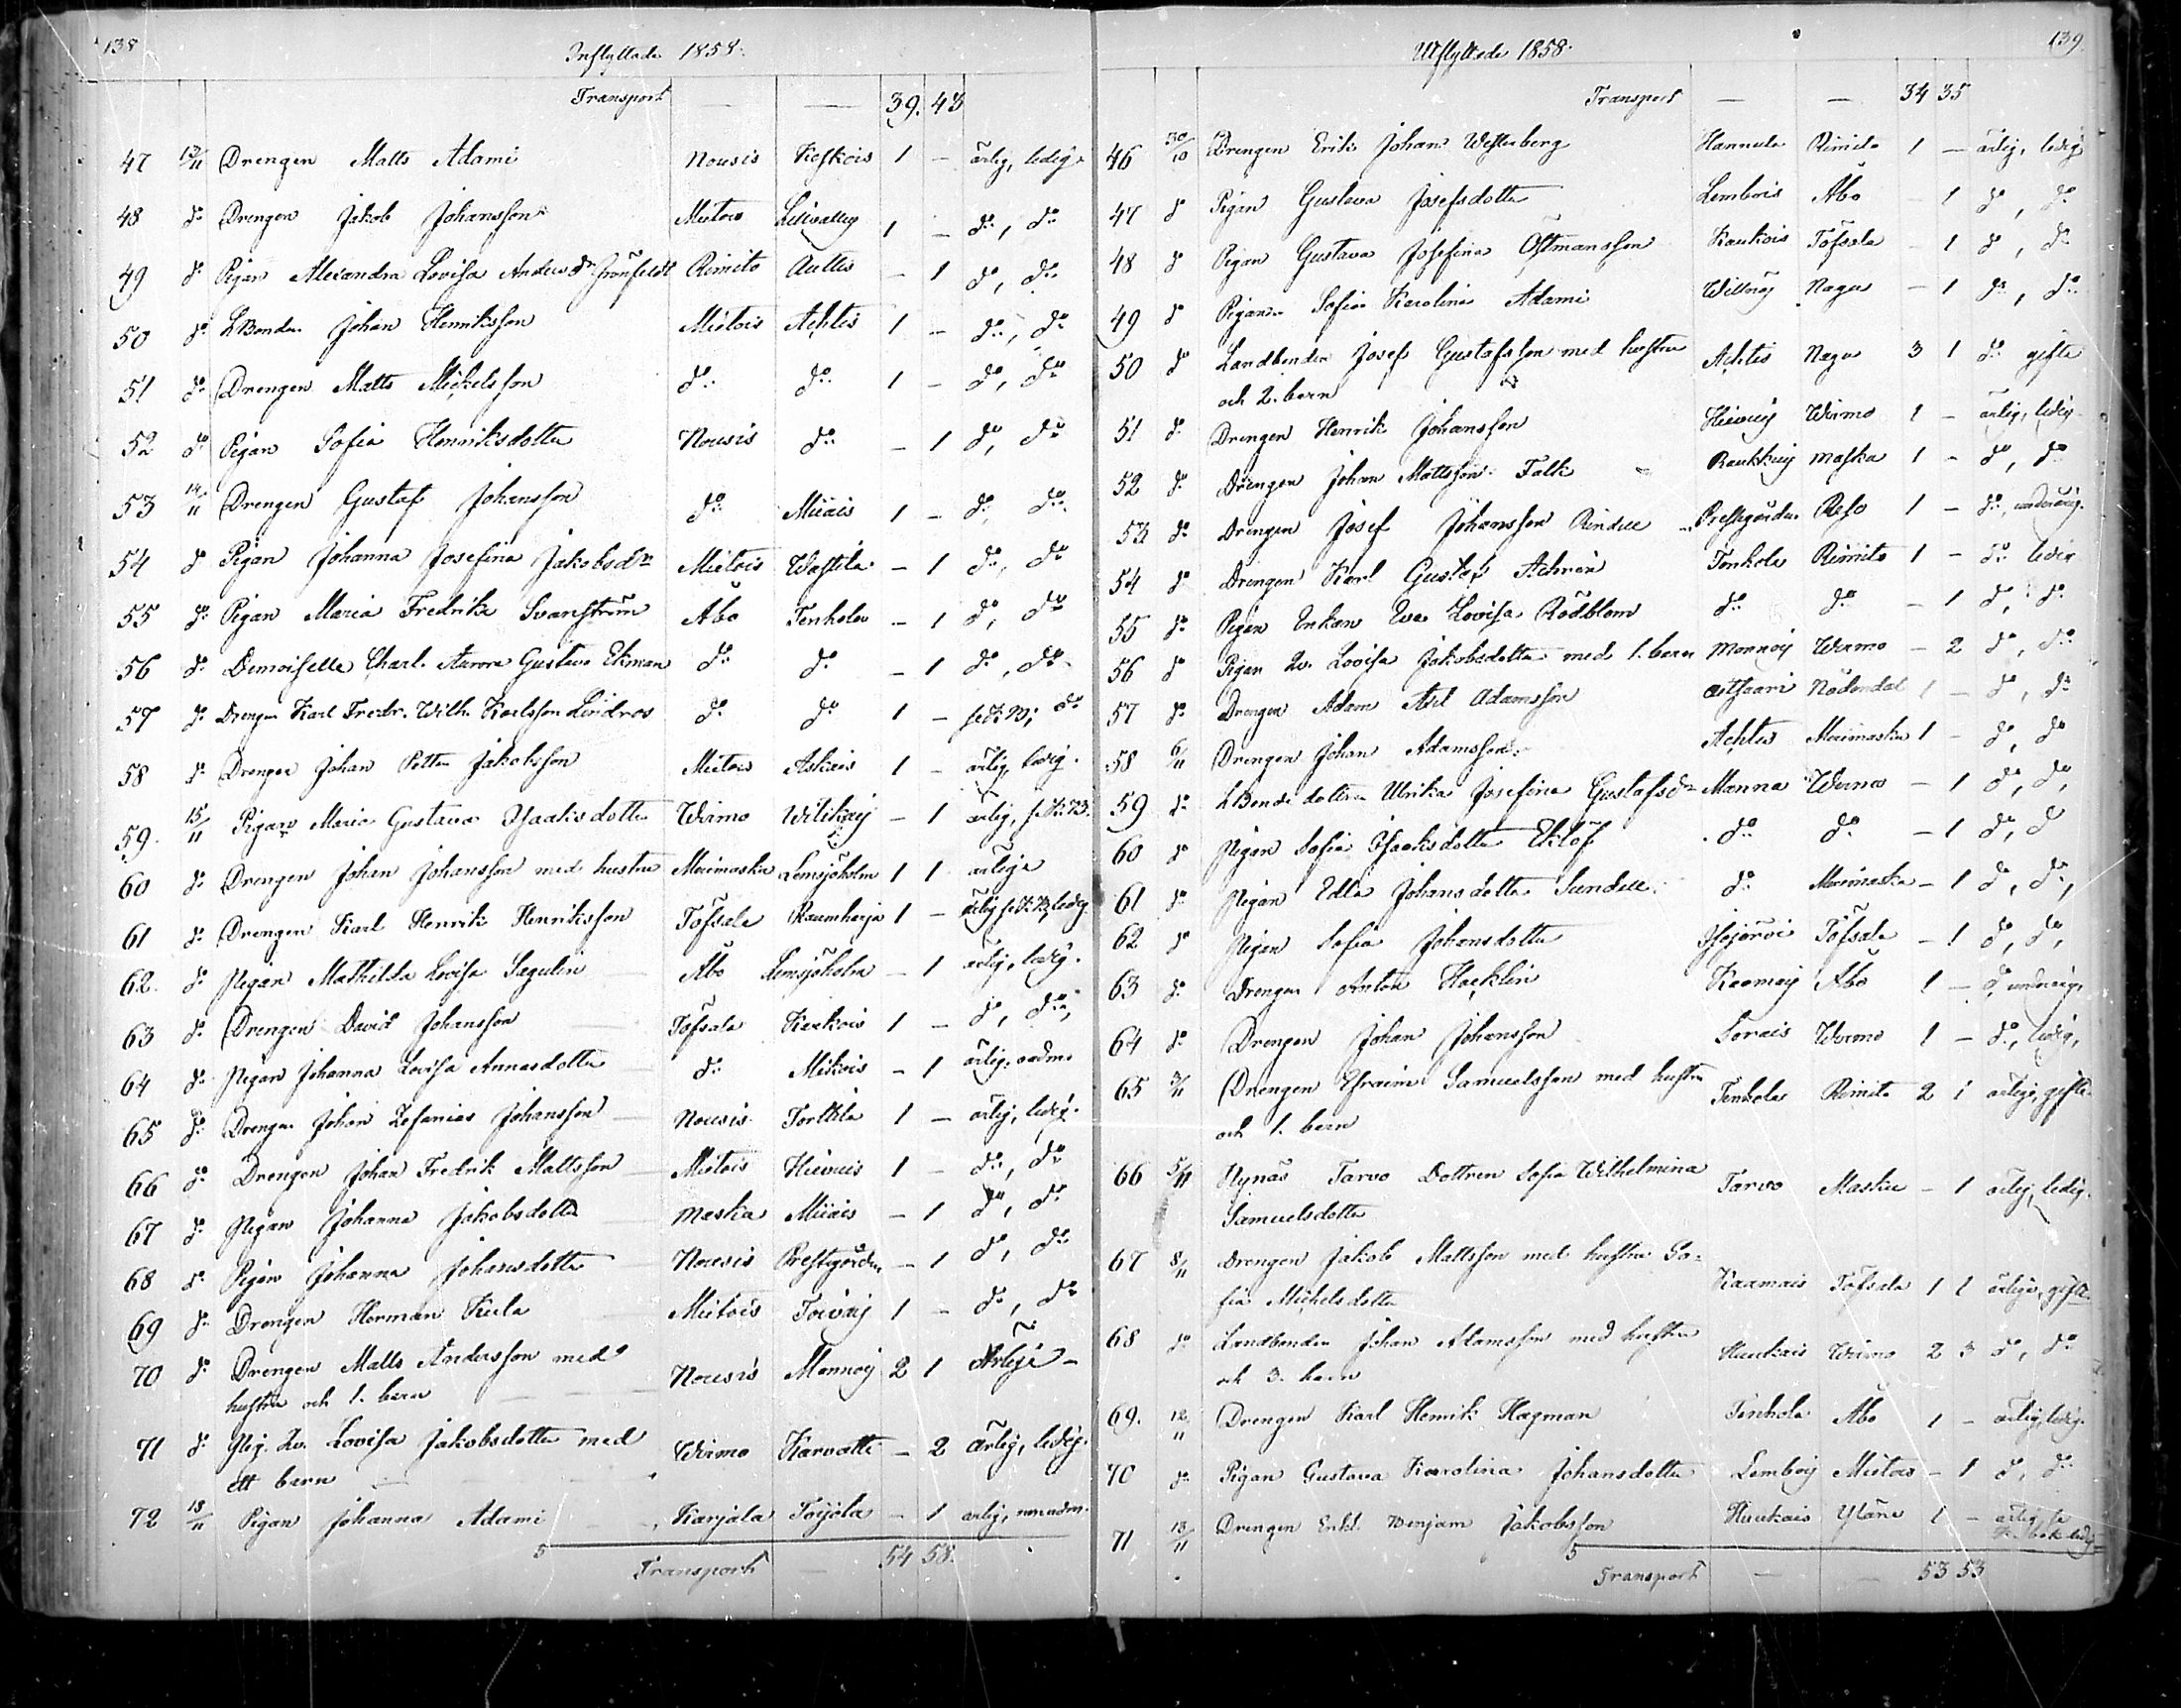 138
Inflyttade 1858.
Transport — — 39. 43
47 13/11 Drengen Matts Adami Nousis Koskois 1 — ärlig, ledig.
48 do Drengen Jakob Johansson Mietois 1 — do, do
49 do Pigan Alexandra Lovisa Anders dr Grönfeldt Rimito Aultis — 1 do, do
50 do LBonden Johan Henriksson Mietois Achtis 1 — do, do
51 do Drengen Matts Michelsson do do 1 — do, do
52 do Pigan Sofia Henriksdotter Nousis do — 1 do, do
53 14/11 Drengen Gustaf Johansson do Miiais 1 — do, do
54 do Pigan Johanna Josefina Jakobsdr Mietois Wastila — 1 do, do
55 do Pigan Maria Fredrika Svanström Åbo Tenhola — 1 do, do
56 do Demoiselle Charl. Aurora Gustava Ekman do do — 1 do, do
57 do Drengen Karl Fredr. Wilh. Karlsson Lindros do do 1 — se K.B; do
58 do Drengen Johan Petter Jakobsson Mietois Askais 1 — ärlig, ledig.
59. 15/11 Pigan Maria Gustava Isaaksdotter Wirmo Wilikaij — 1 ärlig, se K.B.
60 do Drengen Johan Johansson med hustru Merimasku Lemsjöholm 1 1 ärliga
61 do Drengen Karl Henrik Henriksson Töfsala Raumharja 1 — ärlig se K.B, ledig.
62. do Pigan Mathilda Lovisa Sagulin Åbo Lemsjöholm — 1 ärlig, ledig.
63 do Drengen David Johansson Töfsala Kaukois 1 — do, do,
64 do Pigan Johanna Lovisa Annasdotter do Mikois — 1 ärlig, oadm.
65 do Drengen Johan Zefanias Johansson Nousis Torlkla 1 — ärlig, ledig.
66 do Drengen Johan Fredrik Mattsson Mietois Hievais 1 — do, do
67 do Pigan Johanna Jakobsdotter Maskia Miiais — 1 do, do
68 do Pigan Johanna Johansdotter Nousis Prestgården — 1 do, do
69 do Drengen Herman Kula Mietois Toivaij 1 — do, do
70 do Drengen Matts Andersson med Nousis Monnoij 2 1 Ärlige —
hustru och 1. barn
71 do Pig. Qv. Lovisa Jakobsdotter med Wirmo Karvatti — 2 Ärlig, ledig.
ett barn
72 18/11 Pigan Johanna Adami Karjala Toijola — 1 ärlig,
5
Transport — 54 58.
139
Utflyttade 1858.
Transport — — 34 35
46 30/10 Drengen Erik Johan Westerberg Hannula Rimito 1 — ärlig, ledig
47 do Pigan Gustava Josefsdotter Lembois Åbo — 1 do, do
48 do Pigan Gustava Josefina Östmansson Kaukois Töfsala — 1 do, do
49 do Pigan Sofia Karolina Adami Willnäs Nagu — 1 do, do
50 do Landbonden Josef Gustafsson med hustru Achtis Nagu 3 1 do gifta
och 2. barn
51 do Drengen Henrik Johansson Hievaij Wirmo 1 — ärlig, ledig
52 do Drengen Johan Mattsson Falk Raukkaij Maska 1 — do, do
53 do Drengen Josef Johansson Rindell Prestgården Reso 1 — do, underårig.
54 do Drengen Karl Gustaf Achrén Tenhola Rimito 1 — do ledig
55 do Pigan Enkan Eva Lovisa Rödblom do do — 1 do, do
56 do Pigan Qv. Lovisa Jakobsdotter med 1. barn Monnoij Wirmo — 2 do, do
57 do Drengen Adam Axel Adamsson Nådendal 1 — do, do
58 6/11 Drengen Johan Adamsson Achtis Merimasku 1 — do, do
59 do LBondedottren Ulrika Josefina Gustafsdr Manna Wirmo — 1 do, do,
60 do Pigan Sofia Isaaksdotter Eklöf do do — 1 do, do
61 do Pigan Edla Johansdotter Sundell do Merimasku — 1 do, do,
62 do Pigan Sofia Johansdotter Isojärvi Töfsala — 1 do, do,
63 do Drengen Anton Hacklin Kaamaij Åbo 1 — do, underårig.
64 do Drengen Johan Johansson Sorais Wirmo 1 — do, ledig,
65 3/11 Drengen Efraim Samuelsson med hustru Tenhola Rimito 2 1 ärlige, gifte.
och 1. barn
66 5/11 Nynäs Tarvo Dottren Sofia Wilhelmina Tarvo Masku — 1 ärlig, ledig.
Samuelsdotter
67 8/11 Drengen Jakob Mattsson med hustru So-
fia Michelsdotter Kaamais Töfsala 1 1 ärlige, gifte
68 do Landbonden Johan Adamsson med hustru Huukais Wirmo 2 3 do, do
och 3. barn
69. 12/11 Drengen Karl Henrik Hagman Tenhola Åbo 1 — ärlig, ledig.
70 do Pigan Gustava Karolina Johansdotter Lemboij Mietois — 1 do, do
71 13/11 Drengen Enkl. Benjam Jakobsson Huukais Yläne 1 — ärlig, se
K. bok ledig
5
Transport — — 53 53